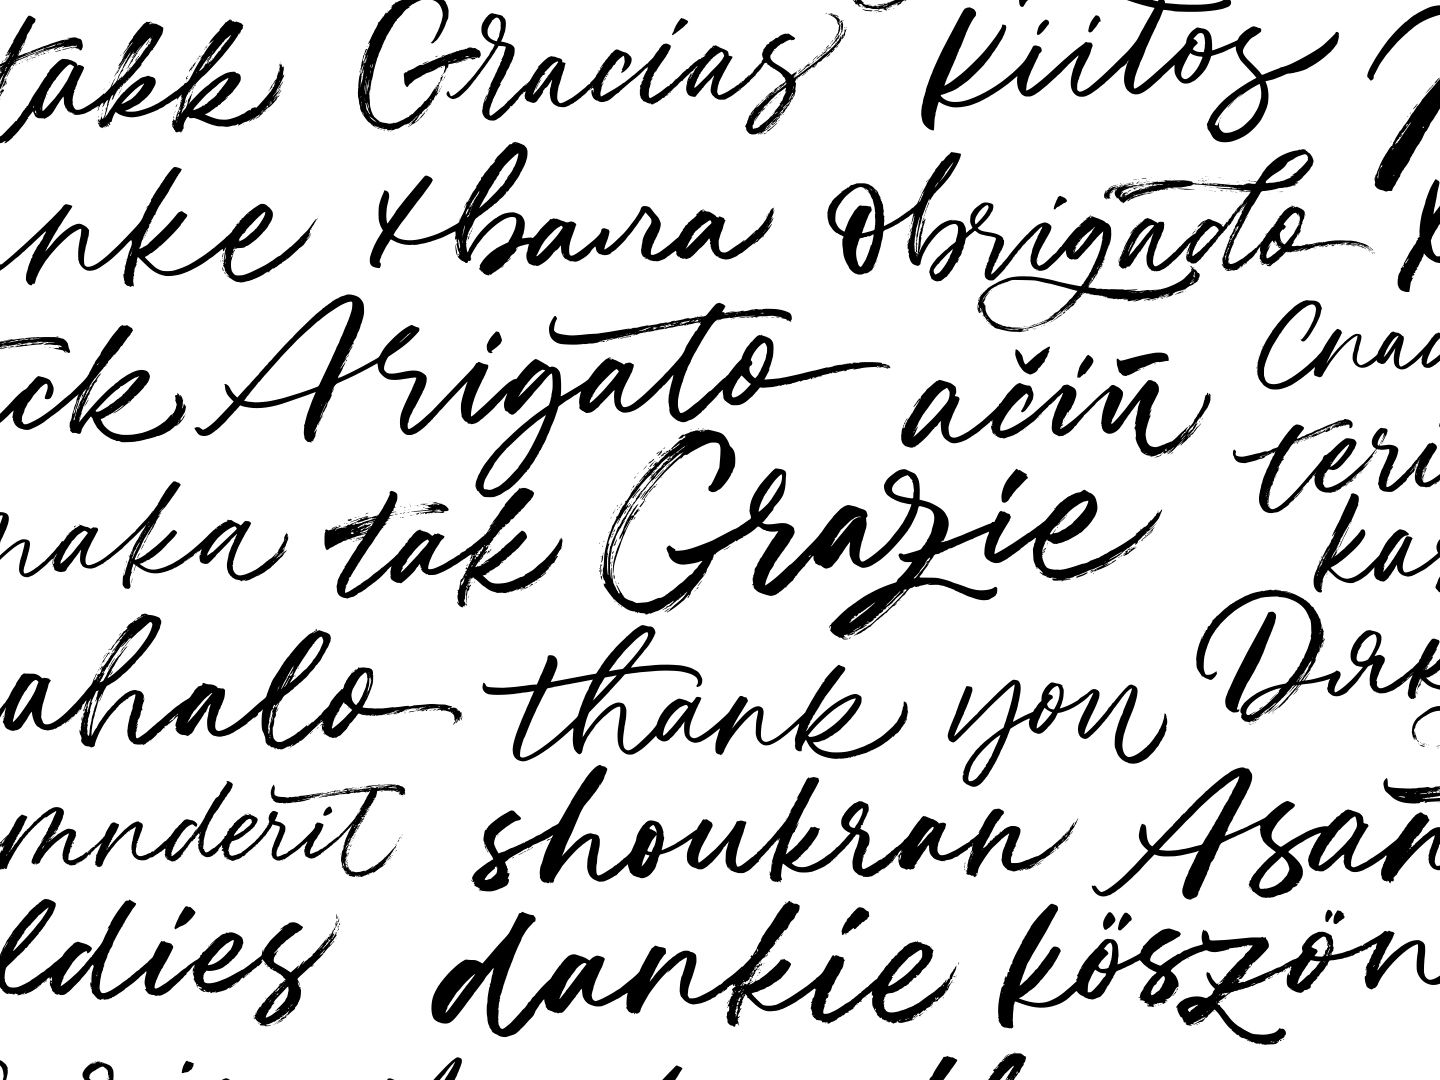 takk Gracias Kiitos
nke хвала obrigado
ck Arigato ačiū Спас
naka tak Grazie teri
kas
ahalo thank you Dzięk
mnderit shoukran Asan
ldies dankie köszön